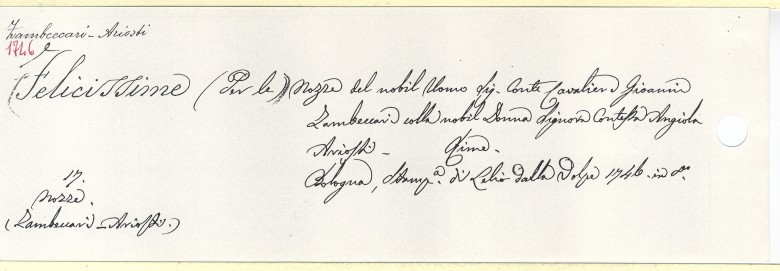 Zambeccari - Ariosti
1746
(Felicissime (Per le) Nozze del nobil Uomo Sig. Conte Cavaliere Gioanni
Zambeccari colla nobil Donna Signora Contessa Angiola
Ariosti - Rime.
Bologna, Stamp.a di Lelio dalla Volpe 1746. in 8.o
17.
Nozze.
(Zambeccari - Ariosti.)